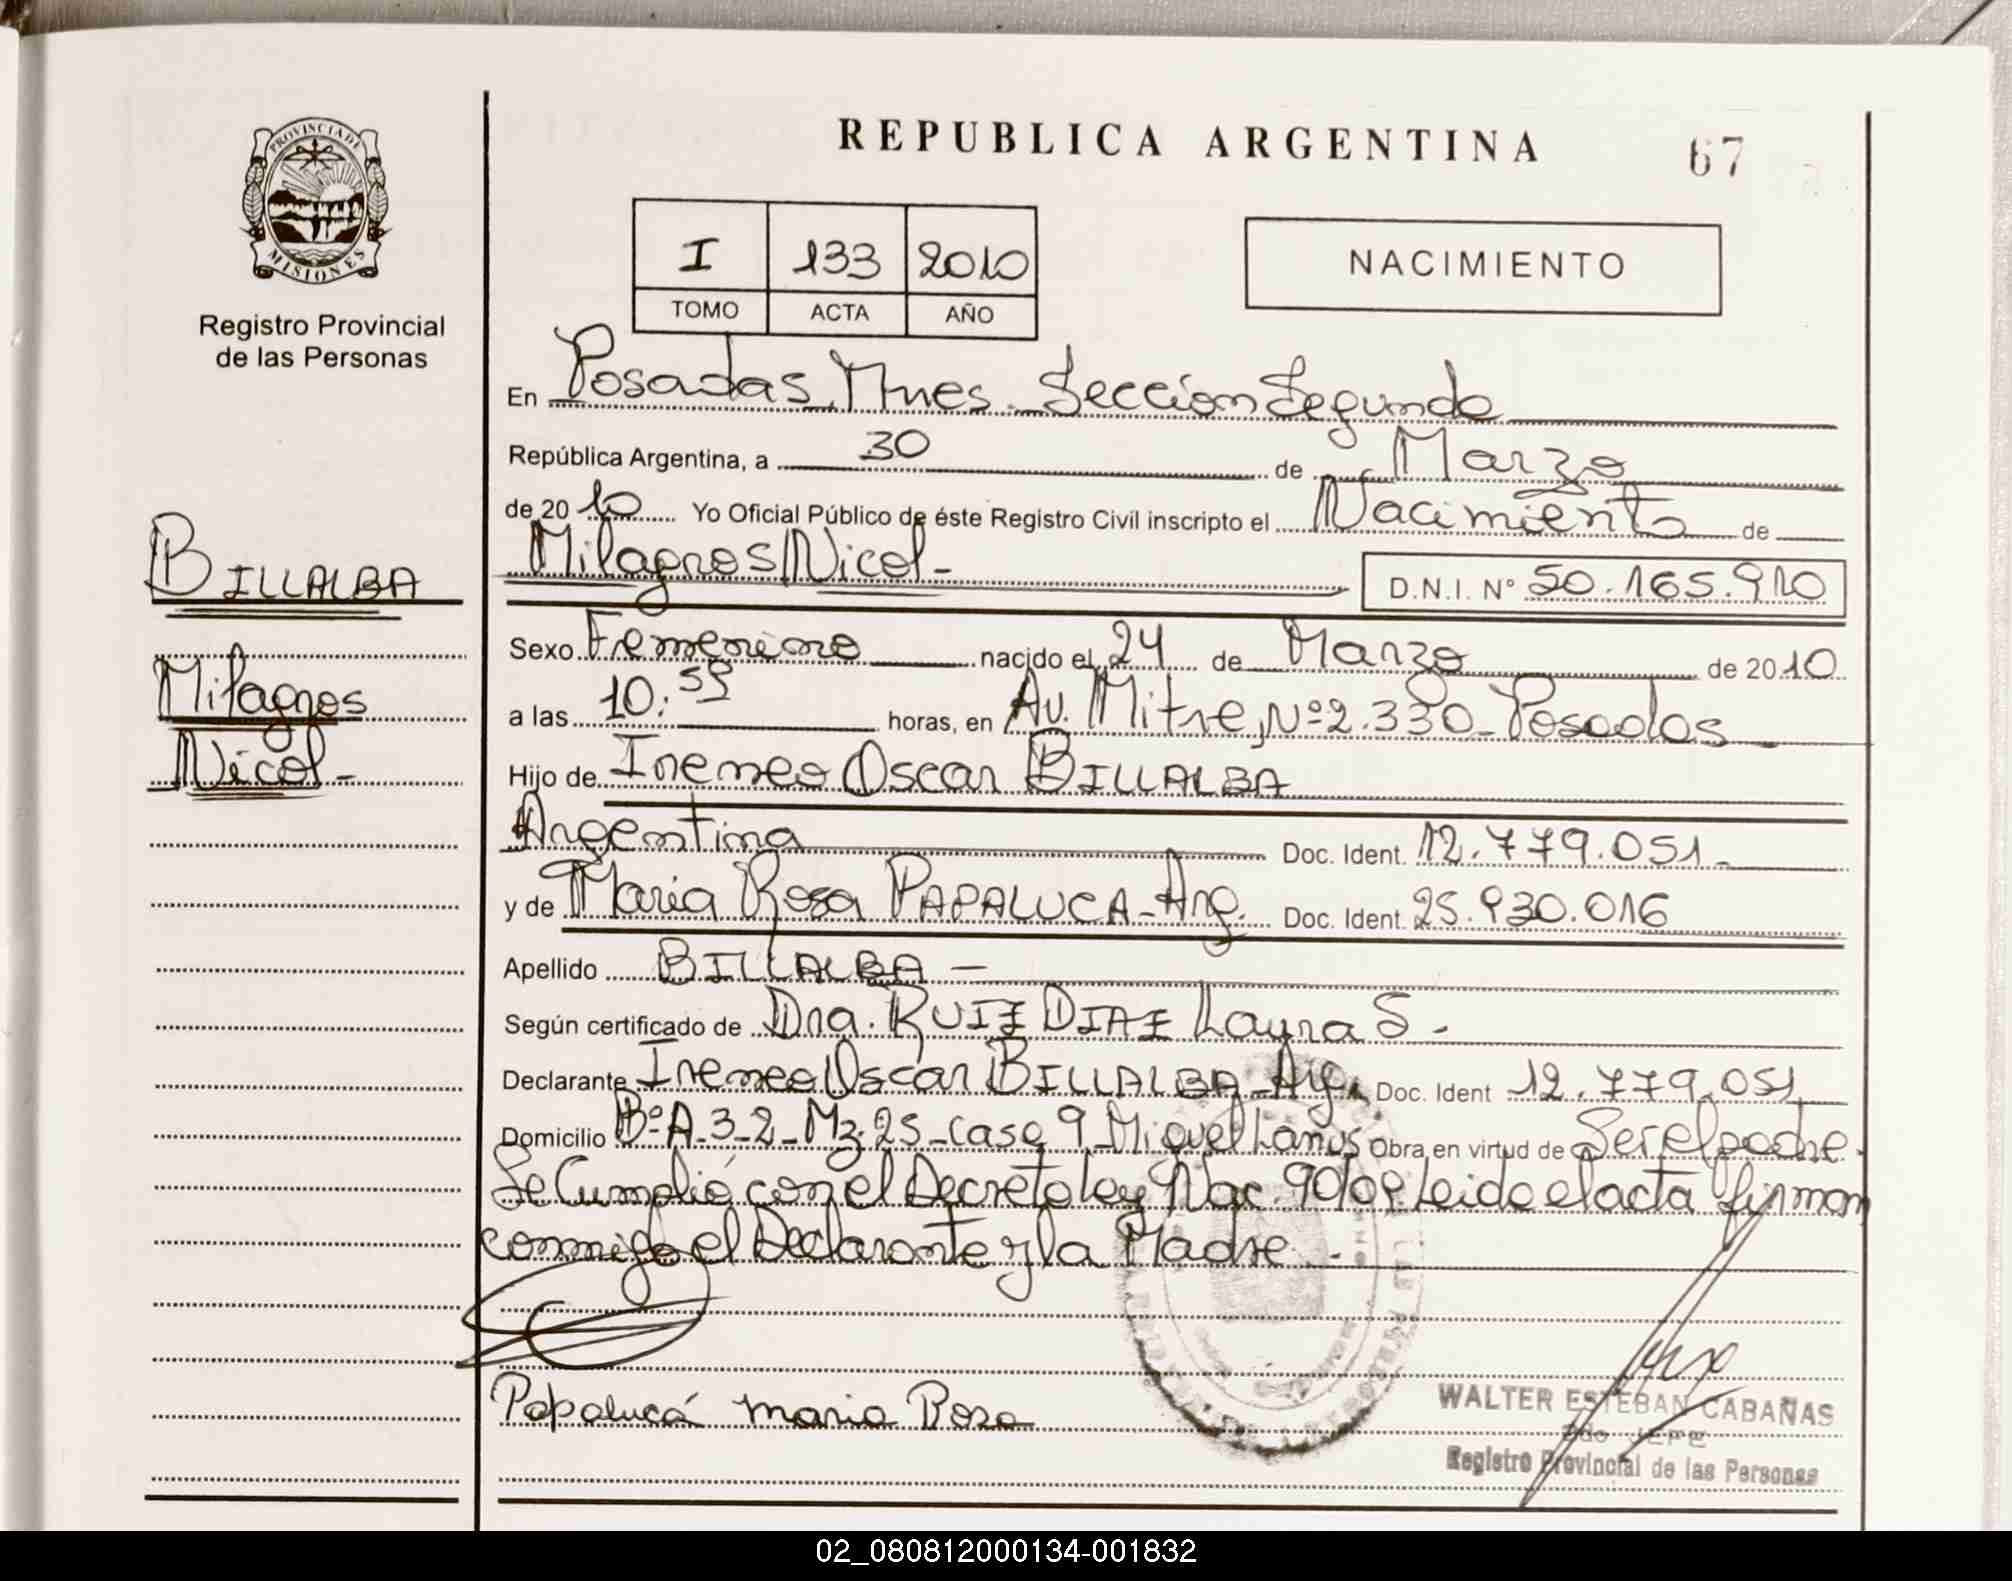 REPUBLICA ARGENTINA
67
PROVINCIA DE
MISIONES
Registro Provincial
de las Personas
I 133 2010
TOMO ACTA AÑO
NACIMIENTO
En Posadas, Mnes. Sección Segunda
República Argentina, a 30 de Marzo
de 2010 Yo Oficial Público de éste Registro Civil inscripto el Nacimiento de
Milagros Nicol-
D.N.I. Nº 50.165.910
BILLALBA
Milagros
Nicol-
Sexo Femenino nacido el 24 de Marzo de 2010
a las 10:55 horas, en Av. Mitre, Nº 2.330_Posadas
Hijo de Ireneo Oscar BILLALBA
Argentina Doc. Ident. 12.779.051-
y de Maria Rosa PAPALUCA-Arg. Doc. Ident. 25.930.016
Apellido BILLALBA -
Según certificado de Dra. RUIZ DIAZ Laura S.
Declarante Ireneo Oscar BILLALBA-Arg. Doc. Ident 12.779.051
Domicilio Bº A-3-2_Mz.25_casa 9_Miguel Lanús Obra en virtud de Ser el padre.
Se Cumplió con el Decreto ley Nac. 90/09. Leida el acta firman
conmigo el Declarante y la Madre.
Papalucá maria Rosa
WALTER ESTEBAN CABAÑAS
2do JEFE
Registro Provincial de las Personas
02_080812000134-001832